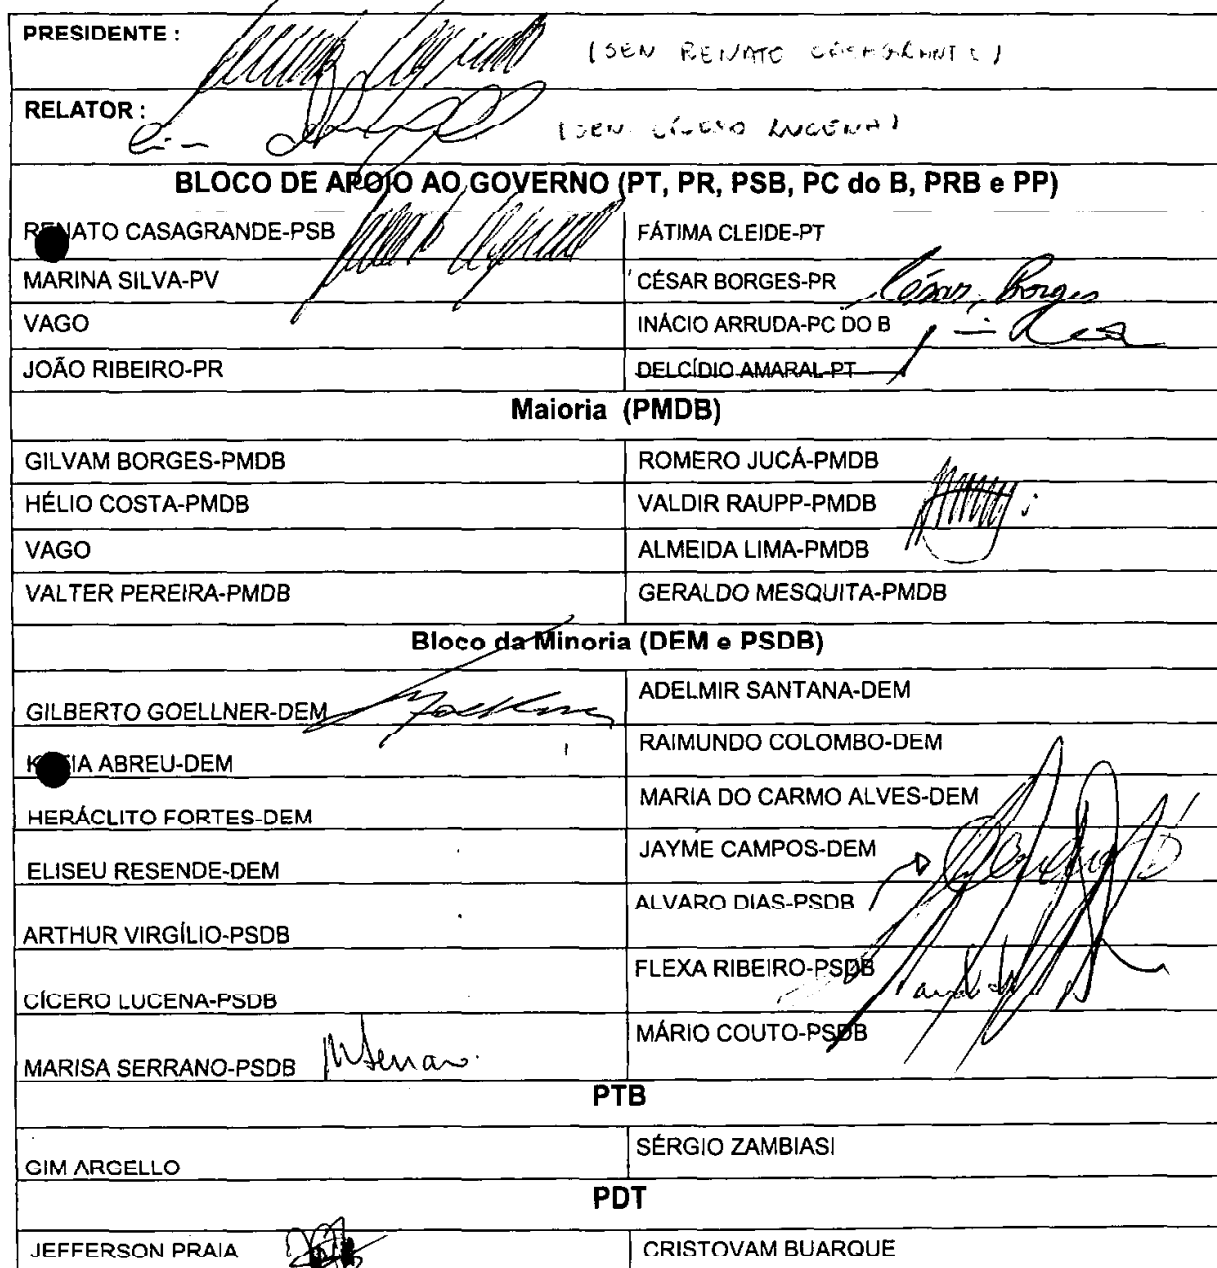 PRESIDENTE :
(SEN RENATO CASAGRANDE)
RELATOR :
(SEN CÍCERO LUCENA)
BLOCO DE APOIO AO GOVERNO (PT, PR, PSB, PC do B, PRB e PP)
RENATO CASAGRANDE-PSB
FÁTIMA CLEIDE-PT
MARINA SILVA-PV
CÉSAR BORGES-PR César Borges
VAGO
INÁCIO ARRUDA-PC DO B
JOÃO RIBEIRO-PR
DELCÍDIO AMARAL-PT
Maioria (PMDB)
GILVAM BORGES-PMDB
ROMERO JUCÁ-PMDB
HÉLIO COSTA-PMDB
VALDIR RAUPP-PMDB
VAGO
ALMEIDA LIMA-PMDB
VALTER PEREIRA-PMDB
GERALDO MESQUITA-PMDB
Bloco da Minoria (DEM e PSDB)
GILBERTO GOELLNER-DEM
ADELMIR SANTANA-DEM
KÁTIA ABREU-DEM
RAIMUNDO COLOMBO-DEM
HERÁCLITO FORTES-DEM
MARIA DO CARMO ALVES-DEM
ELISEU RESENDE-DEM
JAYME CAMPOS-DEM
ARTHUR VIRGÍLIO-PSDB
ALVARO DIAS-PSDB
CÍCERO LUCENA-PSDB
FLEXA RIBEIRO-PSDB
MARISA SERRANO-PSDB MSerrano
MÁRIO COUTO-PSDB
PTB
GIM ARGELLO
SÉRGIO ZAMBIASI
PDT
JEFFERSON PRAIA
CRISTOVAM BUARQUE